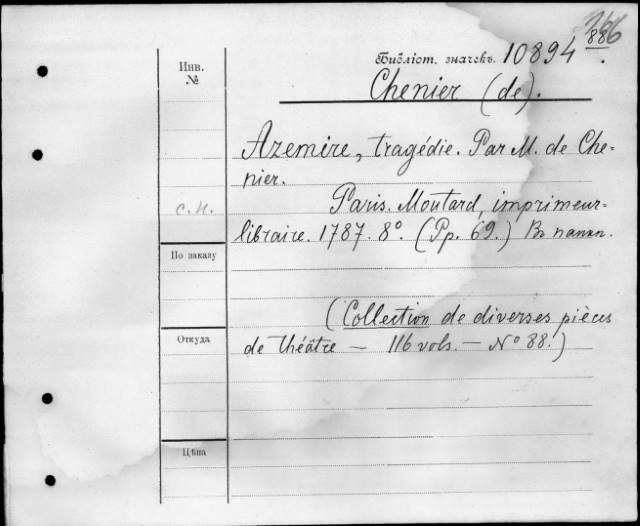 266
886
Инв.
№
Библіот. значекъ. 10894.
Chenier (de).
Azemire, tragédie. Par M. de Che-
nier.
с.н.
Paris. Moutard, imprimeur-
libraire. 1787. 8°. (Pp. 69.) Въ папкѣ.
По заказу
(Collection de diverses pièces
Откуда
de théâtre — 116 vols. — № 88.)
Цѣна